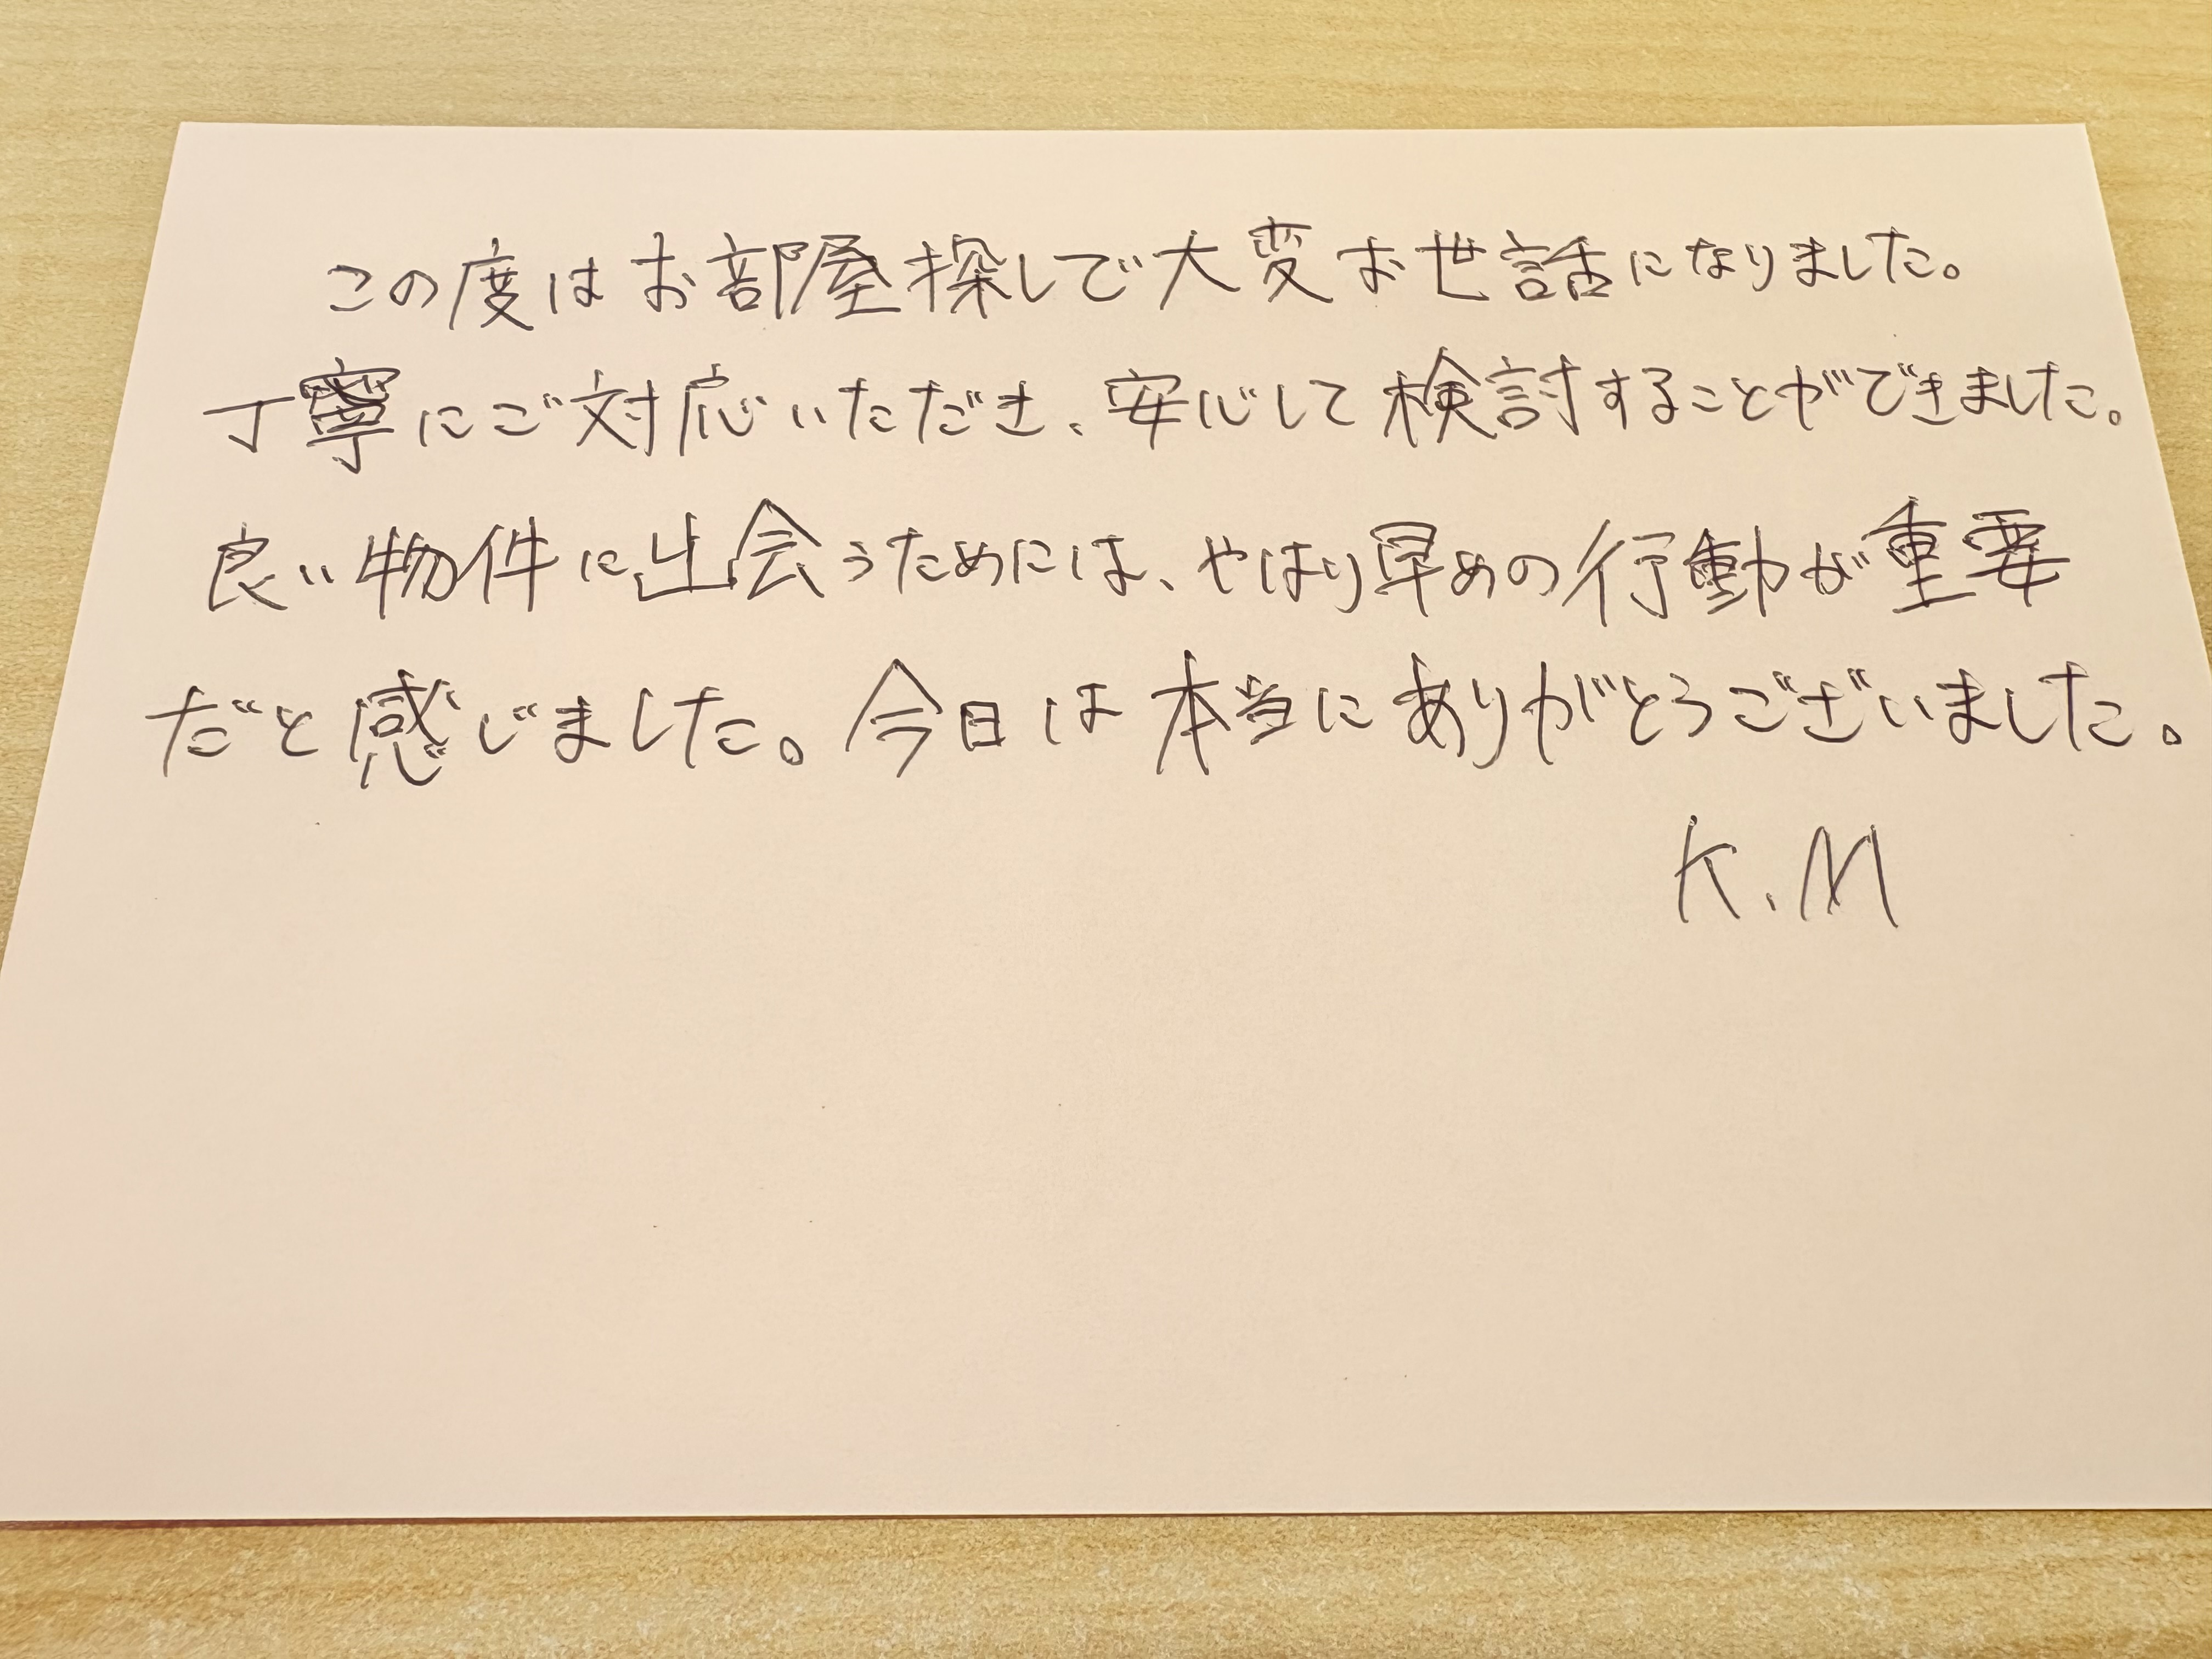 この度はお部屋探しで大変お世話になりました。
丁寧にご対応いただき、安心して検討することができました。
良い物件に出会うためには、やはり早めの行動が重要
だと感じました。今日は本当にありがとうございました。
K.M